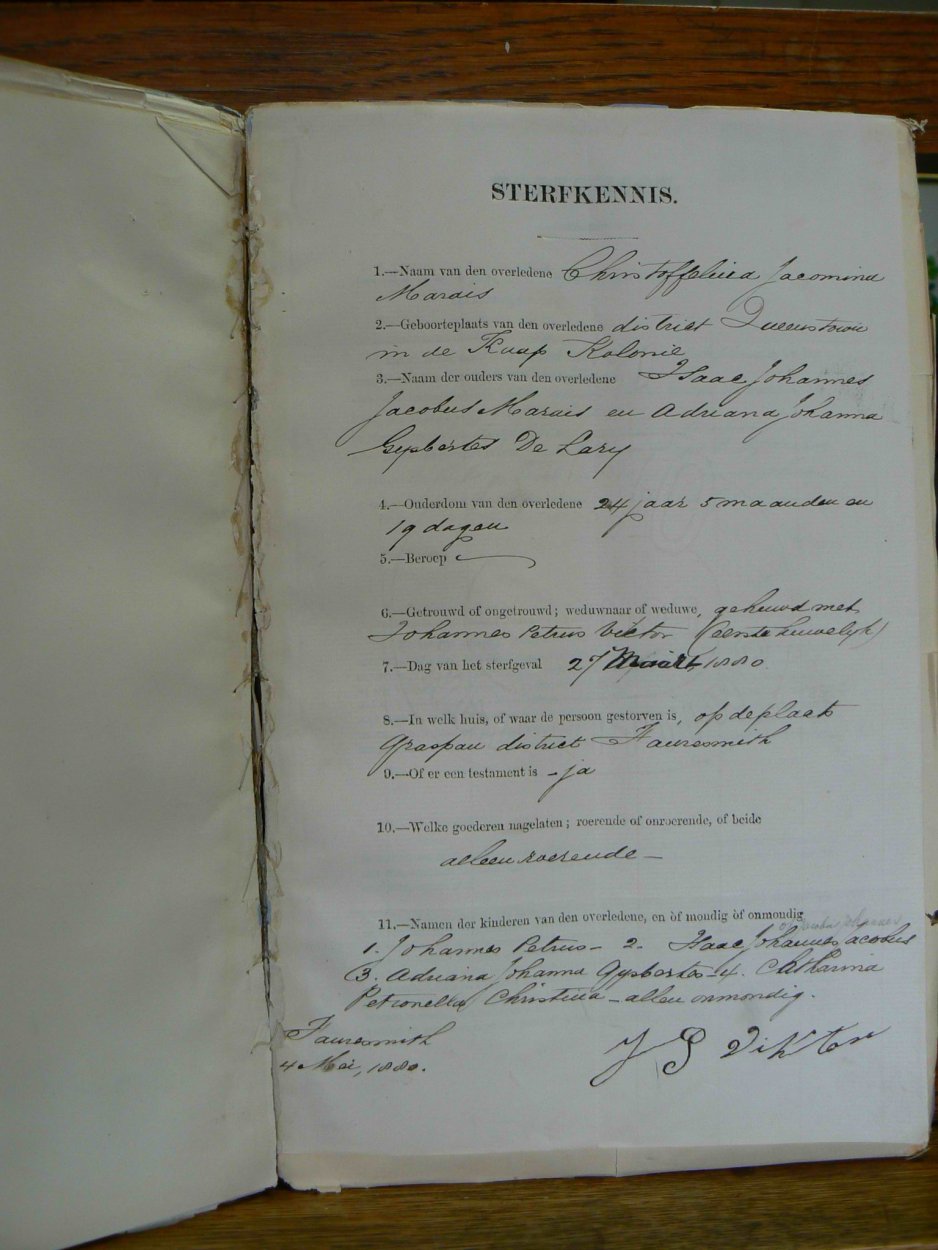 STERFKENNIS.
1.—Naam van den overledene Christoffelina Jacomina
Marais
2.—Geboorteplaats van den overledene district Queenstown
in de Kaap Kolonie
3.—Naam der ouders van den overledene Isaac Johannes
Jacobus Marais en Adriana Johanna
Gysbertes De Lary
4.—Ouderdom van den overledene 24 jaar 5 maanden en
19 dagen
5.—Beroep
6.—Getrouwd of ongetrouwd; weduwnaar of weduwe, gehuwd met
Johannes Petrus Victor (eerste huwelyk)
7.—Dag van het sterfgeval 27 Maart 1880.
8.—In welk huis, of waar de persoon gestorven is, op de plaats
Graspan district Fauresmith
9.—Of er een testament is - ja
10.—Welke goederen nagelaten; roerende of onroerende, of beide
alleen roerende —
11.—Namen der kinderen van den overledene, en òf mondig òf onmondig
1. Johannes Petrus - 2. Isaac Johannes Jacobus
3. Adriana Johanna Gysbertes - 4. Catharina
Petronella Christina - allen onmondig.
Fauresmith
4 Mei, 1880.
J P Viktor